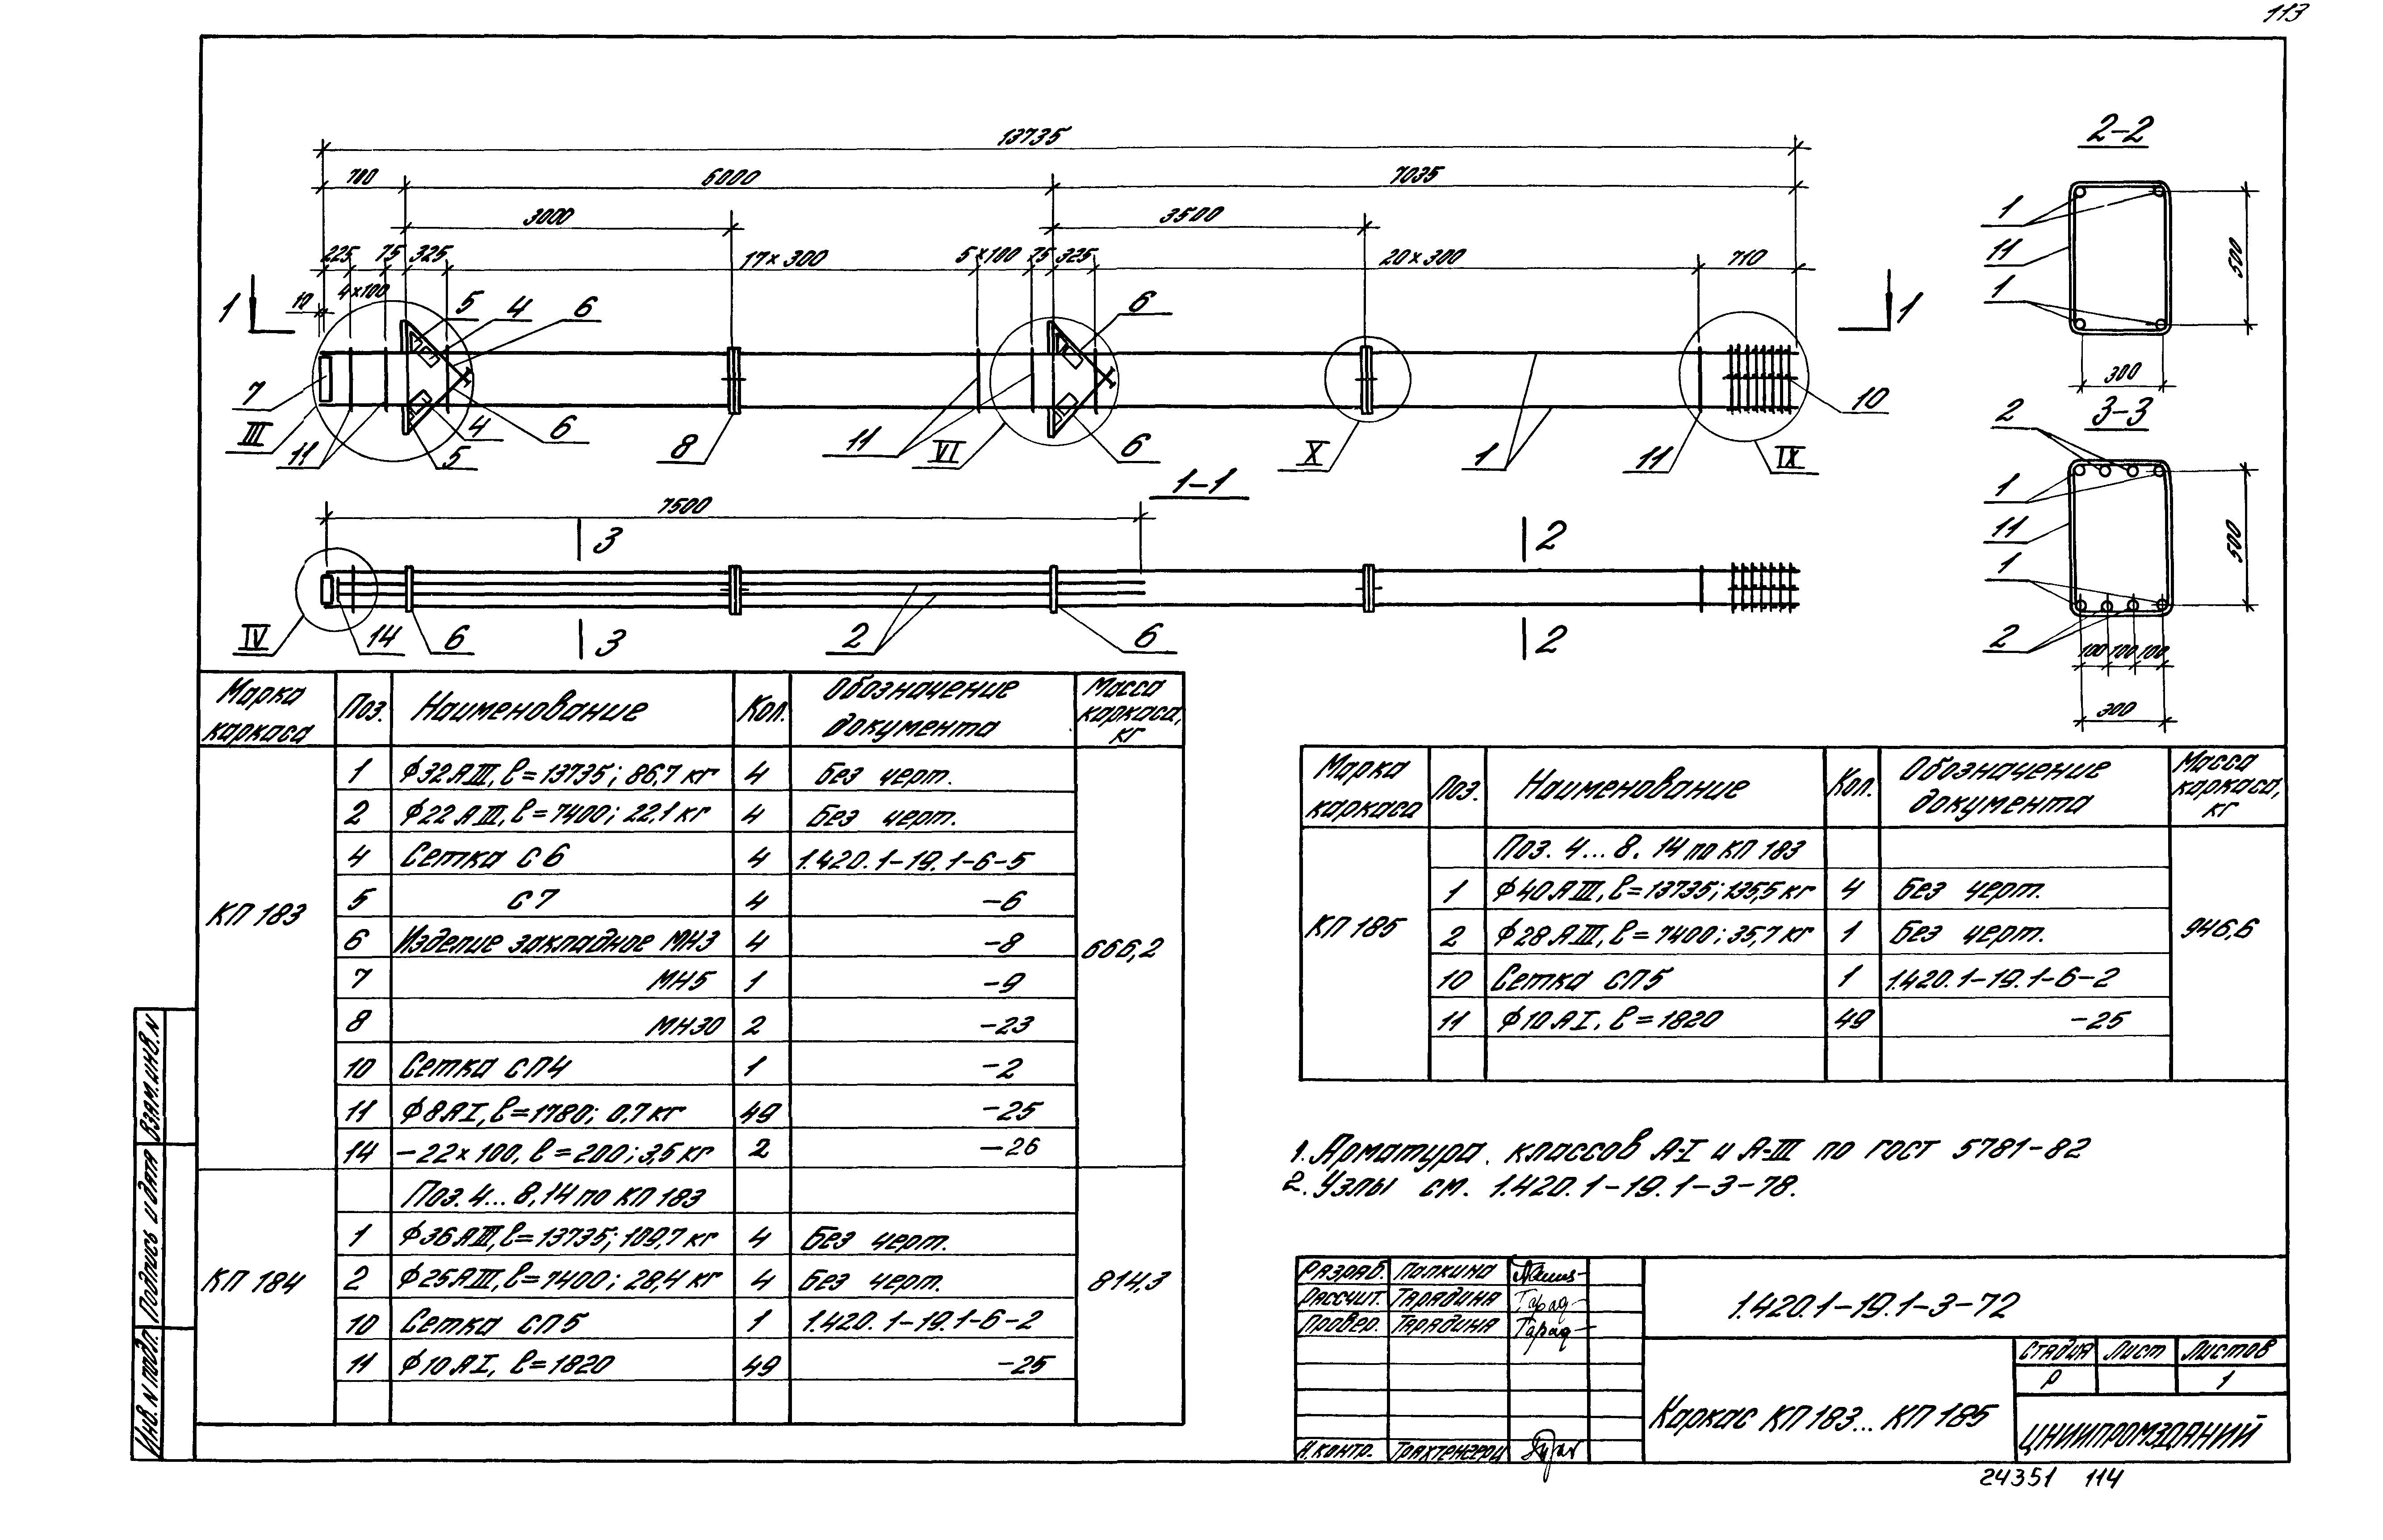 113
13735
700 6000 7035
3000 3500
225 75 325 17×300 5×100 75 325 20×300 710
10 4×100
1 5 4 6 6 1
7 III 11 5 4 6 8 11 VI 6 X 1 11 IX 10
1-1
7500
3 2
IV 14 6 3 2 6 2
2-2
1
11
1
500
300
3-3
2
1
11
1
2
500
100 100 100
300
Марка каркаса | Поз. | Наименование | Кол. | Обозначение документа | Масса каркаса, кг
КП 183 | 1 | ϕ32АIII, ℓ=13735; 86,7 кг | 4 | Без черт. | 666,2
2 | ϕ22АIII, ℓ=7400; 22,1 кг | 4 | Без черт.
4 | Сетка С6 | 4 | 1.420.1-19.1-6-5
5 | С7 | 4 | -6
6 | Изделие закладное МН3 | 4 | -8
7 | МН5 | 1 | -9
8 | МН30 | 2 | -23
10 | Сетка СП4 | 1 | -2
11 | ϕ8АI, ℓ=1780; 0,7 кг | 49 | -25
14 | -22×100, ℓ=200; 3,5 кг | 2 | -26
КП 184 | Поз. 4...8, 14 по КП 183 | 814,3
1 | ϕ36АIII, ℓ=13735; 109,7 кг | 4 | Без черт.
2 | ϕ25АIII, ℓ=7400; 28,4 кг | 4 | Без черт.
10 | Сетка СП5 | 1 | 1.420.1-19.1-6-2
11 | ϕ10АI, ℓ=1820 | 49 | -25
Марка каркаса | Поз. | Наименование | Кол. | Обозначение документа | Масса каркаса, кг
КП 185 | Поз. 4...8. 14 по КП 183 | 946,6
1 | ϕ40АIII, ℓ=13735; 135,5 кг | 4 | Без черт.
2 | ϕ28АIII, ℓ=7400; 35,7 кг | 1 | Без черт.
10 | Сетка СП5 | 1 | 1.420.1-19.1-6-2
11 | ϕ10АI, ℓ=1820 | 49 | -25
1. Арматура классов А-I и А-III по ГОСТ 5781-82
2. Узлы см. 1.420.1-19.1-3-78.
Разраб. Палкина
Рассчит. Тарядина
Провер. Тарядина
Н.контр. Трахтенгерц
1.420.1-19.1-3-72
Каркас КП 183...КП 185
Стадия Лист Листов
Р 1
ЦНИИПРОМЗДАНИЙ
24351 114
Взам.инв.N
Подпись и дата
Инв.N подл.